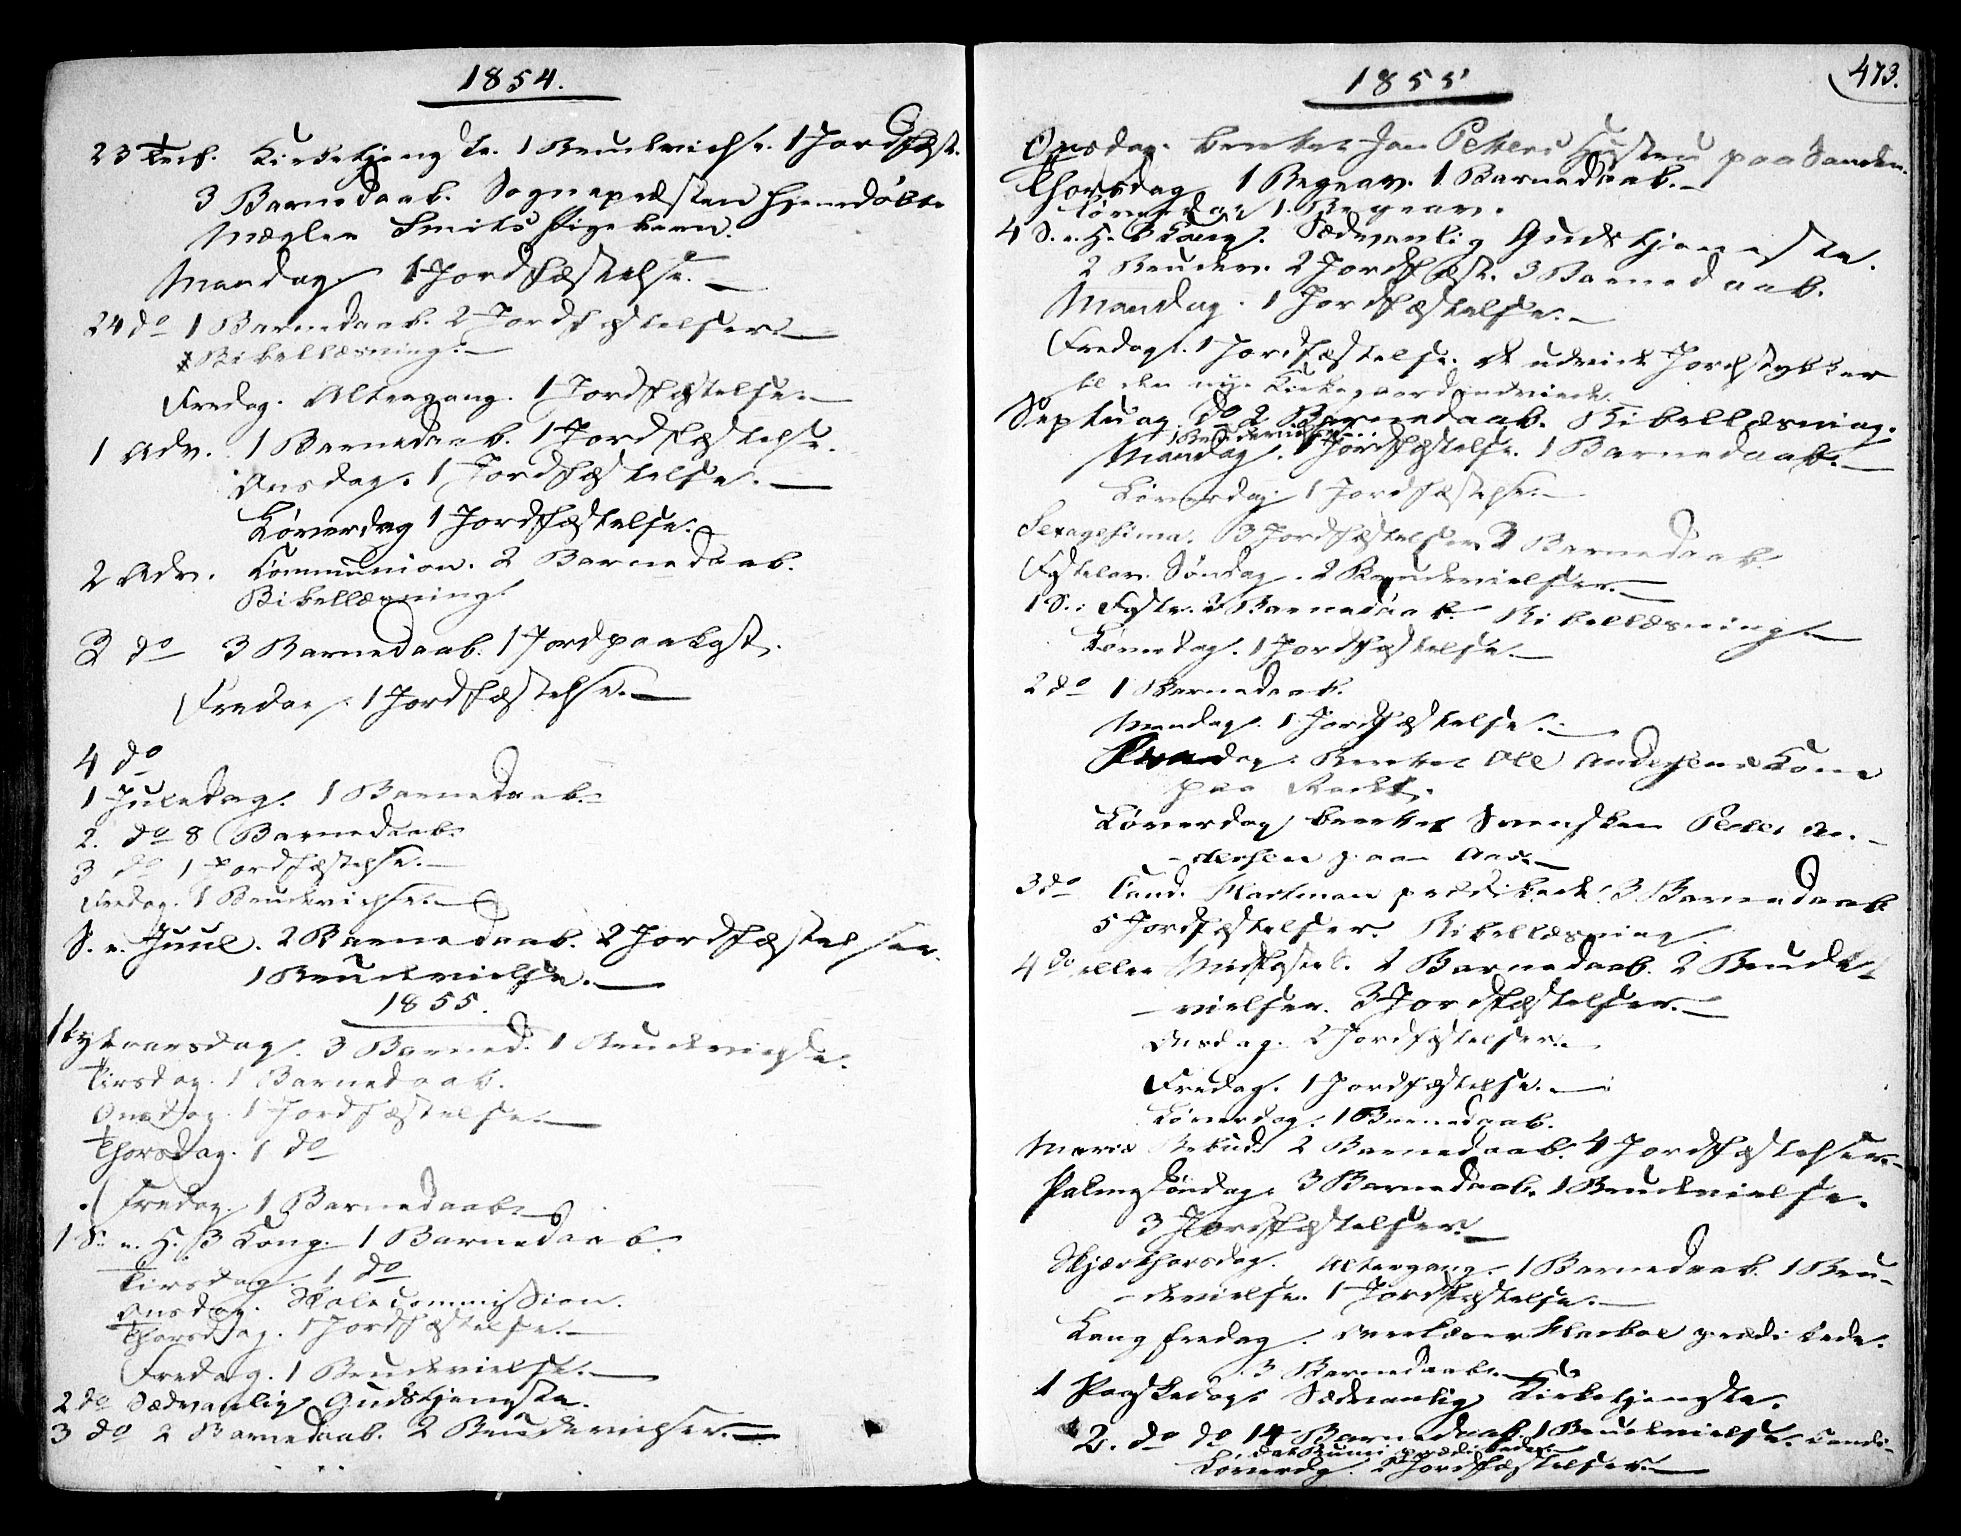 1854.
23 Tref. Kirketjeneste. 1 Brudevielse. 1 Jordfæst.
3 Barnedaab. Sognepræsten hjemmedøbte
Mægler Smiths Pigebarn.
Mandag 1 Jordfæstelse.
24 do 1 Barnedaab. 2 Jordfæstelser.
Bibellæsning.
Fredag. Altergang. 1 Jordfæstelse.
1 Adv. 1 Barnedaab. 1 Jordfæstelse.
Onsdag. 1 Jordfæstelse.
Løverdag 1 Jordfæstelse.
2 Adv. Communion. 2 Barnedaab.
Bibellæsning
3 do 3 Barnedaab. 1 Jordpaakast.
Fredag. 1 Jordfæstelse.
4 do
1 Juledag. 1 Barnedaab.
2. do 8 Barnedaab.
3 do 1 Jordfæstelse.
Fredag. 1 Brudevielse.
S. e. Juul. 2 Barnedaab. 2 Jordfæstelser.
1 Brudevielse.
1855.
Nytaarsdag. 3 Barned. 1 Brudevielse.
Tirsdag. 1 Barnedaab.
Onsdag. 1 Jordfæstelse.
Thorsdag. 1 do
Fredag. 1 Barnedaab.
1 S. e. H. 3 Kong. 1 Barnedaab.
Tirsdag. 1 do
Onsdag. Skolecommission.
Thorsdag. 1 Jordfæstelse.
Fredag. 1 Brudevielse.
2 do Sædvanlig Gudstjeneste.
3 do 2 Barnedaab. 2 Brudevielser.
1855
473.
Onsdag. Jan Peters Hustru paa Sanden.
Thorsdag 1 Begrav. 1 Barnedaab.
Løverdag 1. Begrav.
4 S. e. H. 3 Kong. Sædvanlig Gudstjeneste.
2 Brudev. 2 Jordfæst. 3 Barnedaab.
Mandag. 1 Jordfæstelse.
Fredag. 1 Jordfæstelse. det udvidede Jordstykker
til den nye Kirkegaard indviede.
Septuag. do 2 Barnedaab. Bibellæsning.
1 Brudevielse.
Mandag. 1 Jordfæstelse. 1 Barnedaab.
Løverdag. 1 Jordfæstelse.
Sexagesima. 3 Jordfæstelser 2 Barnedaab
Fastelav. Søndag. 2 Brudevielser.
1 S. i Faste. 2 Barnedaab. Bibellæsning.
Løverdag. 1 Jordfæstelse.
2 do 1 Barnedaab.
Mandag. 1 Jordfæstelse.
Ole Andersens Kone
paa
Løverdag Svensken Peder An-
dersen paa
3 do Cand. Hartman prædikede. 3 Barnedaab
5 Jordfæstelser. Bibellæsning.
4 do eller Midfaste. 1 Barnedaab. 2 Brude-
vielser. 3 Jordfæstelser.
Onsdag. 2 Jordfæstelser.
Fredag. 1 Jordfæstelse.
Løverdag. 1 Barnedaab.
Mariæ Bebud. 2 Barnedaab. 4 Jordfæstelser.
Palmesøndag. 3 Barnedaab. 1 Brudevielse.
3 Jordfæstelser.
Skjærthorsdag. Altergang. 1 Barnedaab. 1 Bru-
devielse. 1 Jordfæstelse.
Langfredag. Overlærer prædikede.
3 Barnedaab.
1 Paaskedag. Sædvanlig Kirketjeneste.
2. do do 14 Barnedaab. 1 Brudevielse. Candi-
dat prædikede.
Løverdag. 2 Jordfæstelser.